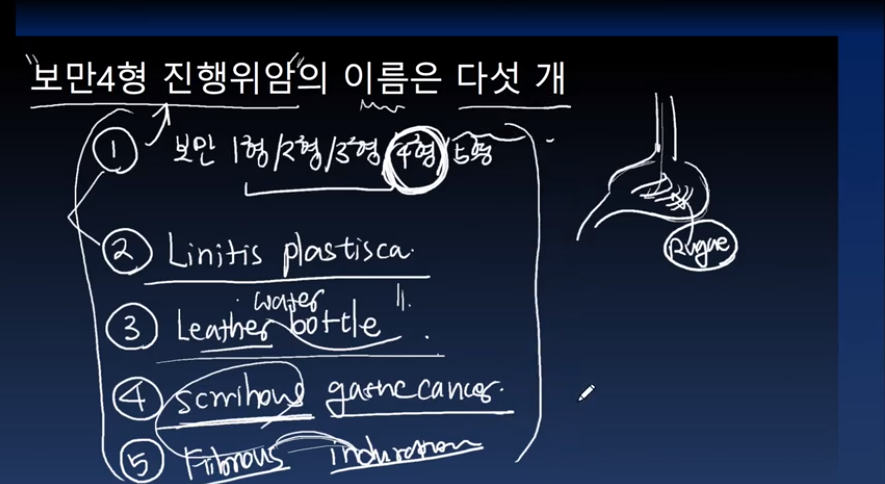 "보만4형 진행위암"의 이름은 다섯 개
① 보만 1형/2형/3형/4형/5형
② Linitis plastisca.
③ Leather water bottle.
④ gastric cancer.
⑤ Fibrous induration
Rugae